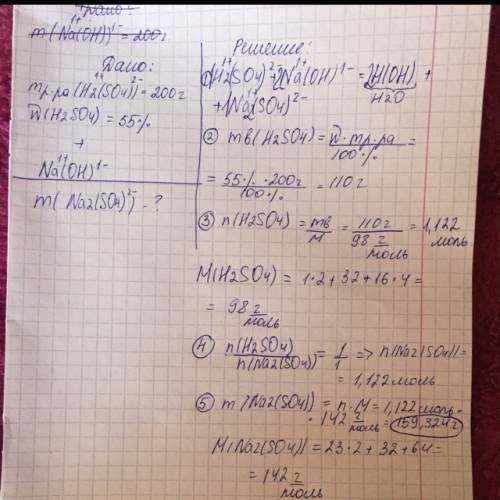 Дано:
m(Na(OH))¹⁻ = 200г
Дано:
mр-ра(H₂(SO₄))²⁻ = 200г
W(H₂SO₄) = 55%
+
Na¹⁺(OH)¹⁻
m(Na₂(SO₄)²⁻) - ?
Решение:
① 1H₂¹⁺(SO₄)²⁻ + 2Na¹⁺(OH)¹⁻ = 2H(OH) +
H₂O
+ 1Na₂¹⁺(SO₄)²⁻
② mв(H₂SO₄) = W·mр-ра/100% =
= 55%·200г/100% = 110г
③ n(H₂SO₄) = mв/M = 110г/98 г/моль = 1,122 моль
M(H₂SO₄) = 1·2+32+16·4 =
= 98 г/моль
④ n(H₂SO₄)/n(Na₂(SO₄)) = 1/1 => n(Na₂(SO₄)) =
= 1,122 моль
⑤ m(Na₂(SO₄)) = n·M = 1,122 моль·
·142 г/моль = 159,324г
M(Na₂(SO₄)) = 23·2+32+64 =
= 142 г/моль